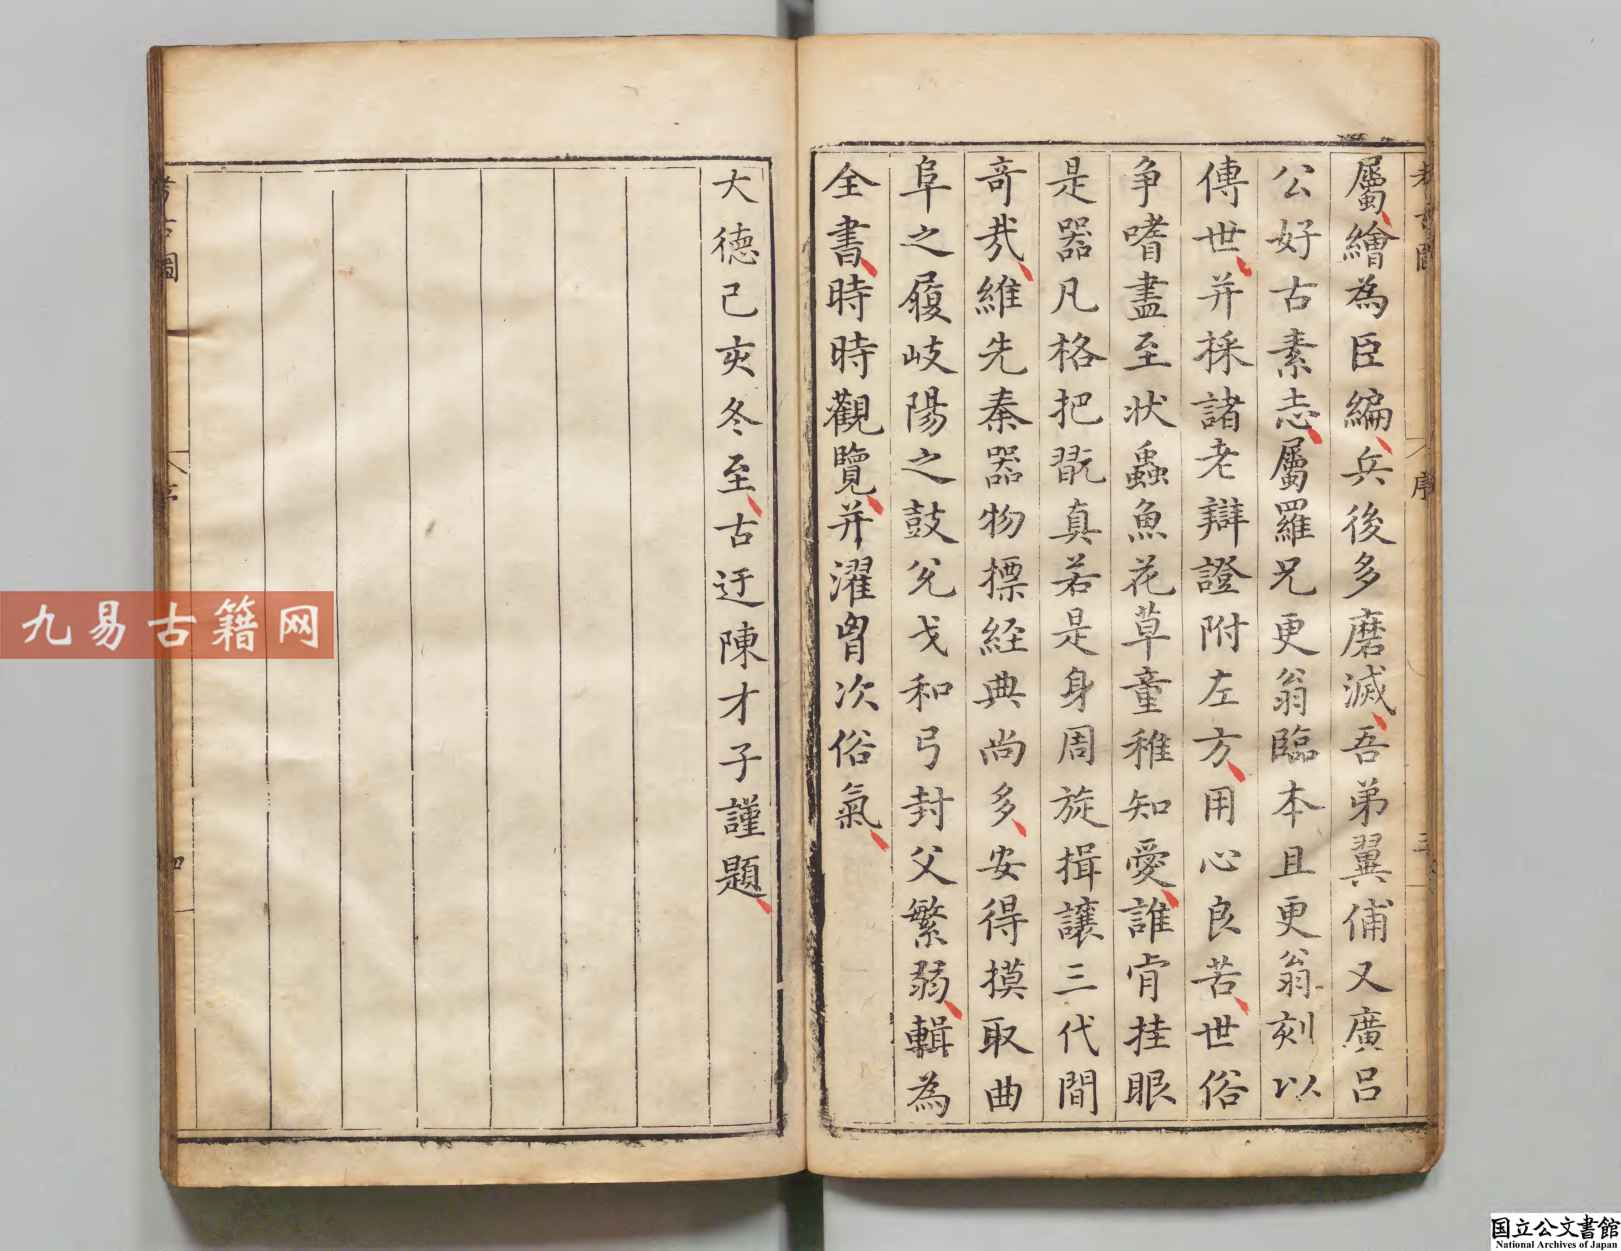 屬繪為臣編兵後多磨滅吾弟翼俌又廣呂
公好古素志屬羅兄更翁臨本且更翁刻以
傳世并採諸老辯證附左方用心良苦世俗
争嗜畫至狀蟲魚花草童稚知愛誰肯挂眼
是器凡格把翫真若是身周旋揖讓三代間
竒㦲維先秦器物摽經典尚多安得摸取曲
阜之履岐陽之鼓兊戈和弓封父繁弱輯為
全書時時觀覽并濯胷次俗氣
大德己亥冬至古迂陳才子謹題
考古圖
序
四
九易古籍网
国立公文書館
National Archives of Japan